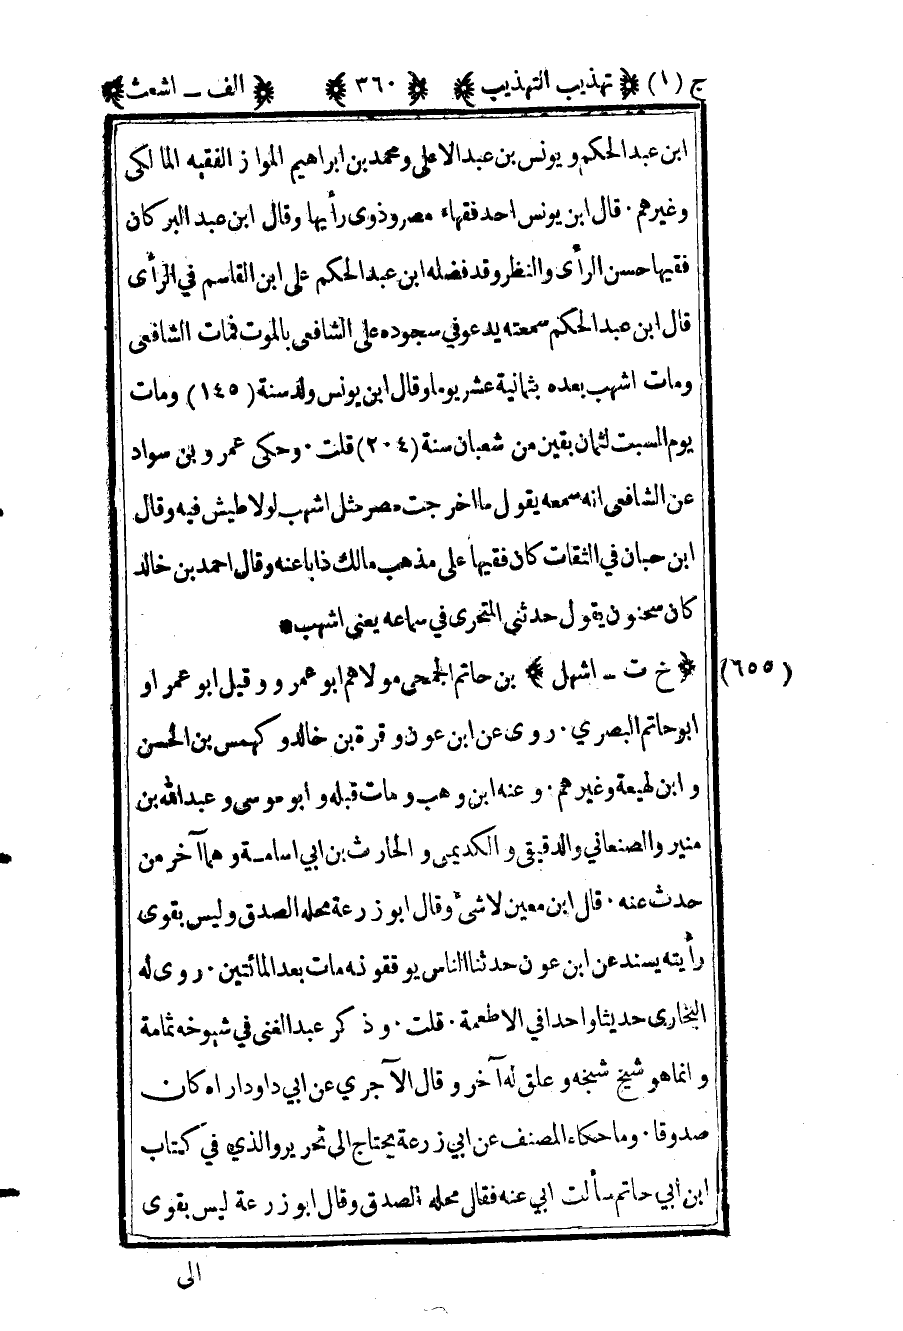 ج (١) ﴿ تهذيب التهذيب ﴾ ﴿ ٣٦٠ ﴾ ﴿ الف ــ اشعث ﴾
ابن عبد الحكم و يونس بن عبد الاعلى و محمد بن ابراهيم المواز الفقيه المالكى
وغيرهم ٠ قال ابن يونس احد فقهاء مصر و ذوى رأيها وقال ابن عبد البر كان
فقيها حسن الرأى والنظر وقد فضله ابن عبد الحكم على ابن القاسم في الرأى
قال ابن عبد الحكم سمعته يدعو في سجوده على الشافعى بالموت فمات الشافعى
ومات اشهب بعده بثمانية عشر يوما وقال ابن يونس ولد سنة (١٤٥) ومات
يوم السبت لثمان بقين من شعبان سنة (٢٠٤) قلت ٠ وحكى عمرو بن سواد
عن الشافعى انه سمعه يقول ما اخرجت مصر مثل اشهب لولا طيش فيه وقال
ابن حبان في الثقات كان فقيها على مذهب مالك ذابا عنه وقال احمد بن خالد
كان سحنون يقول حدثني المتحرى في سماعه يعني اشهب●
(٦٥٥) ﴿ خ ت ــ اشهل ﴾ بن حاتم الجمحى مولاهم ابو عمرو و قيل ابو عمر او
ابو حاتم البصري ٠ روى عن ابن عون و قرة بن خالد و كهمس بن الحسن
و ابن لهيعة وغيرهم ٠ و عنه ابن وهب و مات قبله و أبو موسى و عبد الله بن
منير والصنعاني والدقيقى و الكديمى و الحارث بن ابي اسامة و هما آخر من
حدث عنه ٠ قال ابن معين لا شىٔ وقال ابو زرعة محله الصدق و ليس بقوى
رأيته يسند عن ابن عون حدثنا الناس يوقفونه مات بعد المائتين ٠ روى له
البخارى حديثا واحدا في الاطعمة ٠ قلت ٠ و ذكر عبد الغنى في شيوخه ثمامة
و انما هو شيخ شيخه و علق له آخر و قال الآجري عن ابي داود اراه كان
صدوقا ٠ وما حكاه المصنف عن ابي زرعة يحتاج الى تحرير والذي في كتاب
ابن أبي حاتم سألت ابي عنه فقال محله الصدق وقال ابو زرعة ليس بقوى
الى